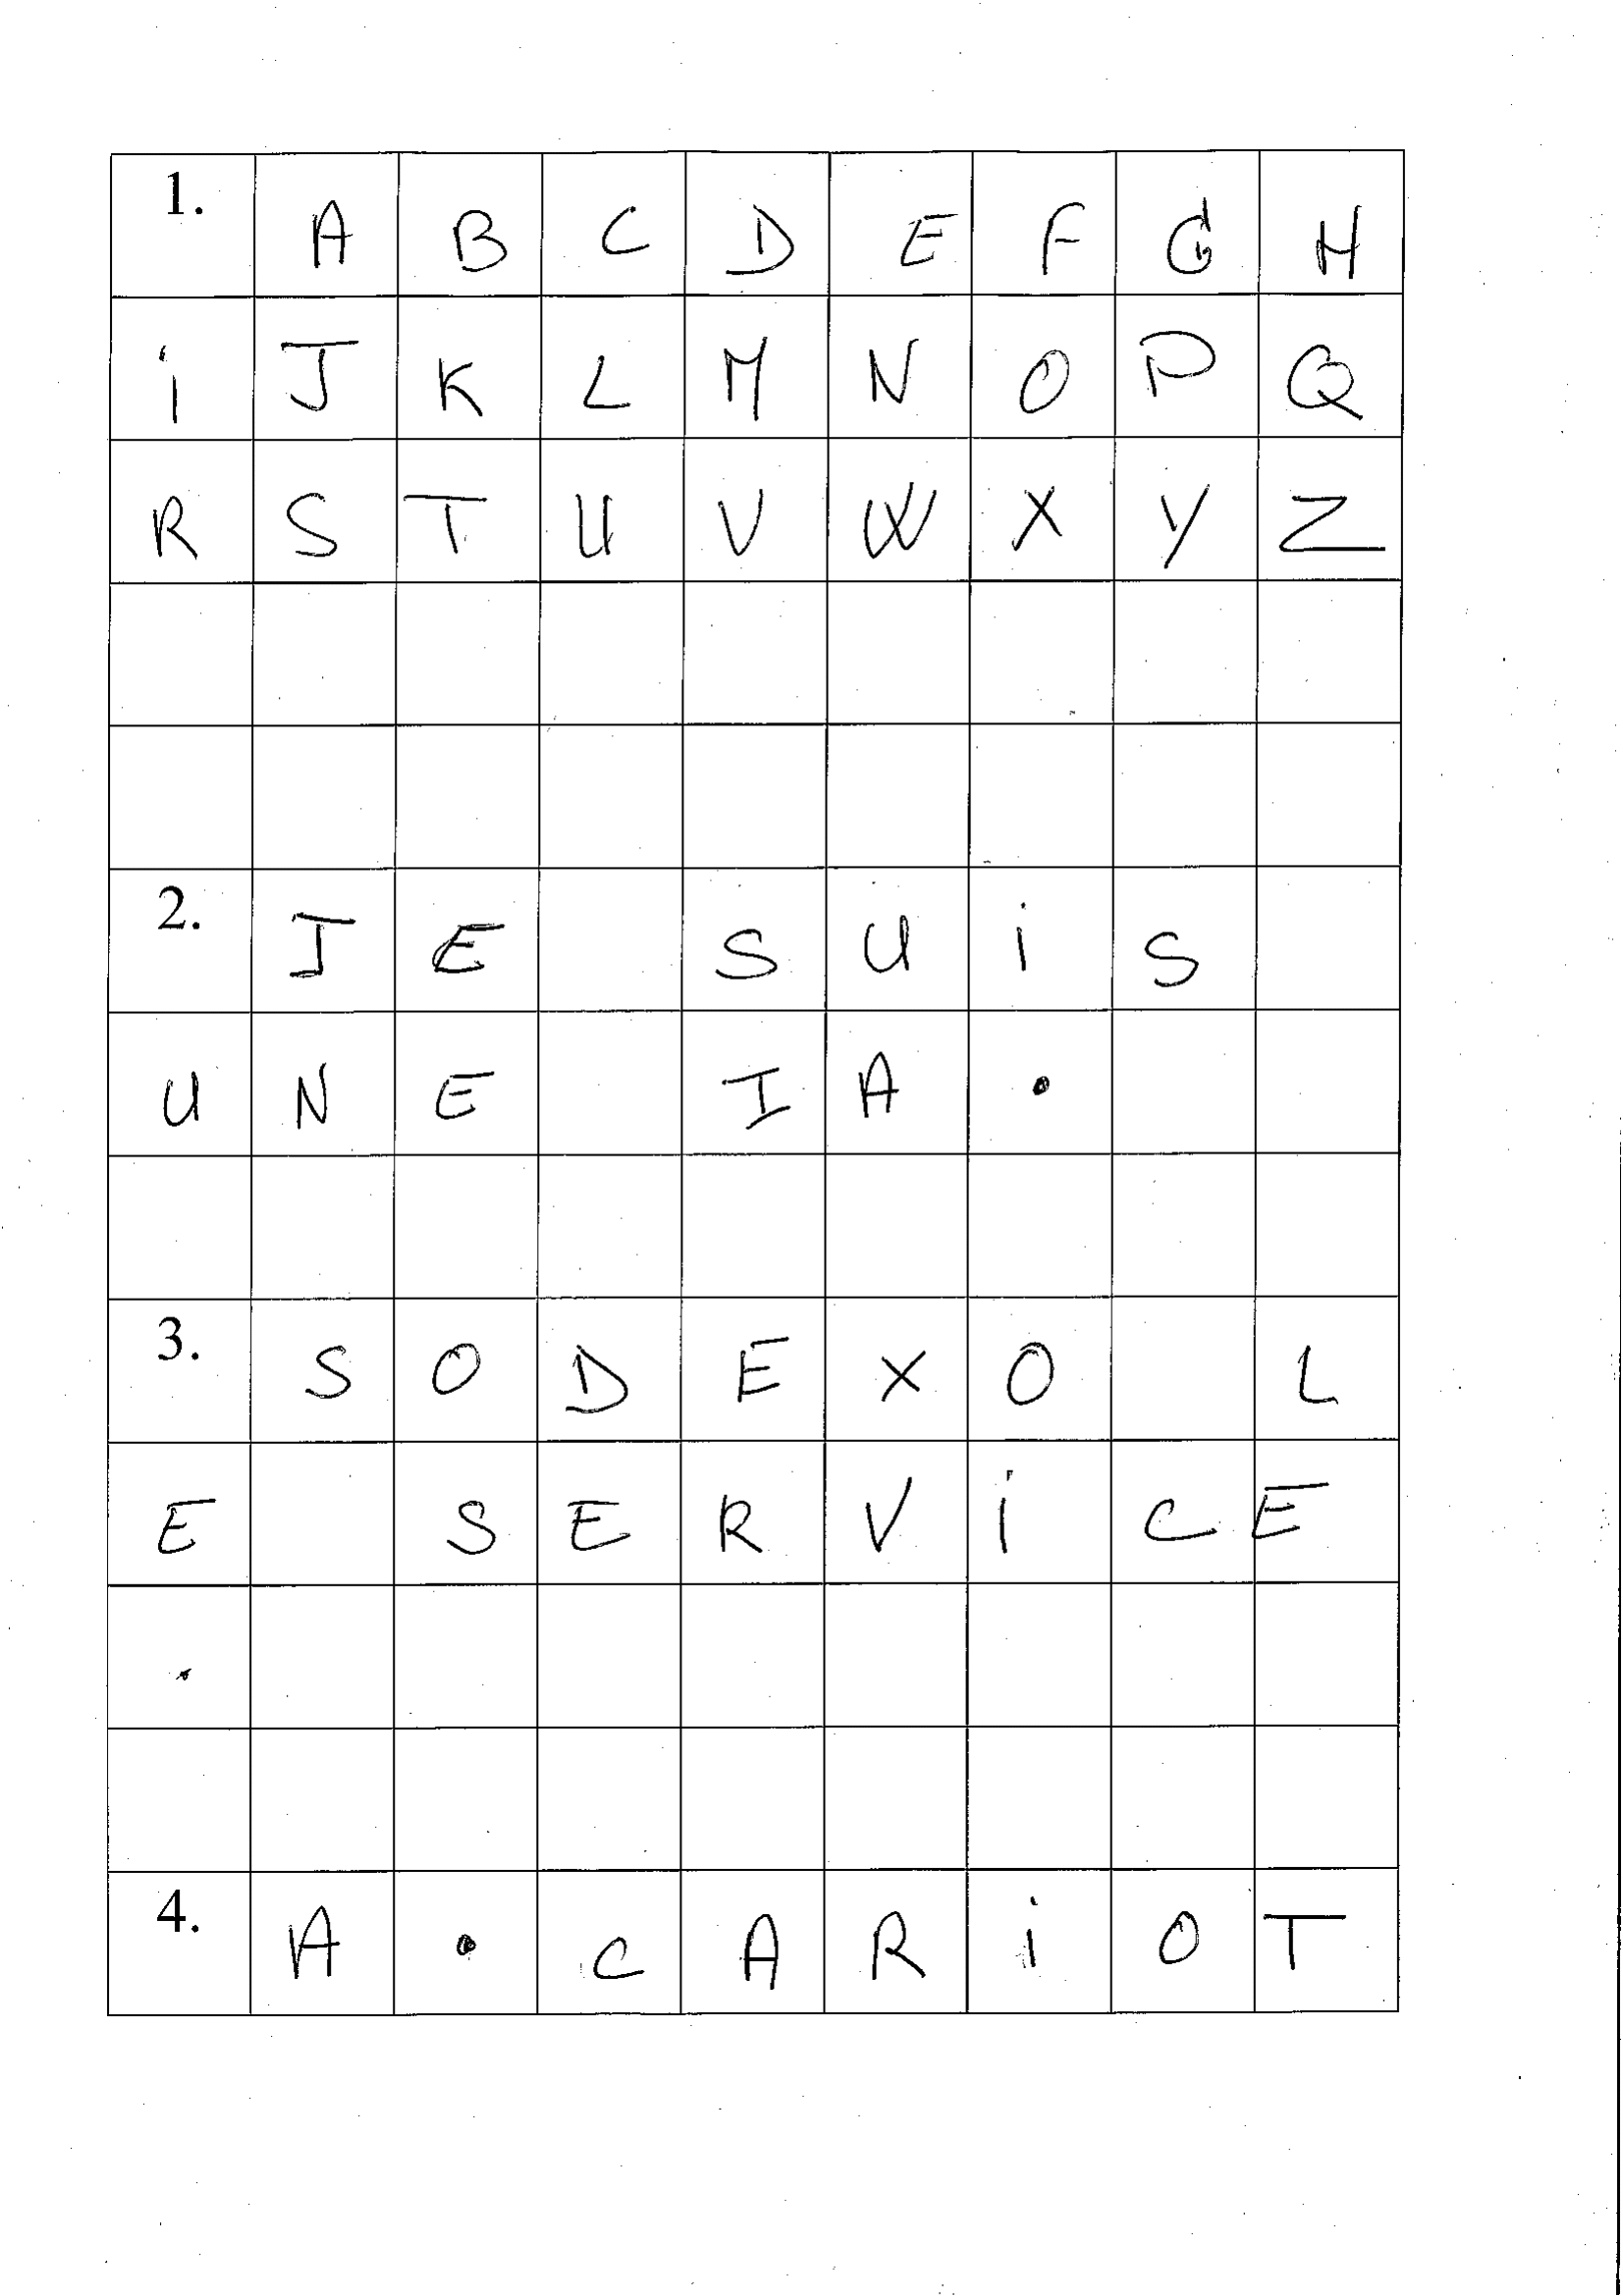 1. A B C D E F G H
i J K L M N O P Q
R S T U V W X Y Z
2. J E S U i S
U N E I A .
3. S O D E X O L
E S E R V i C E
.
4. A . C A R i O T